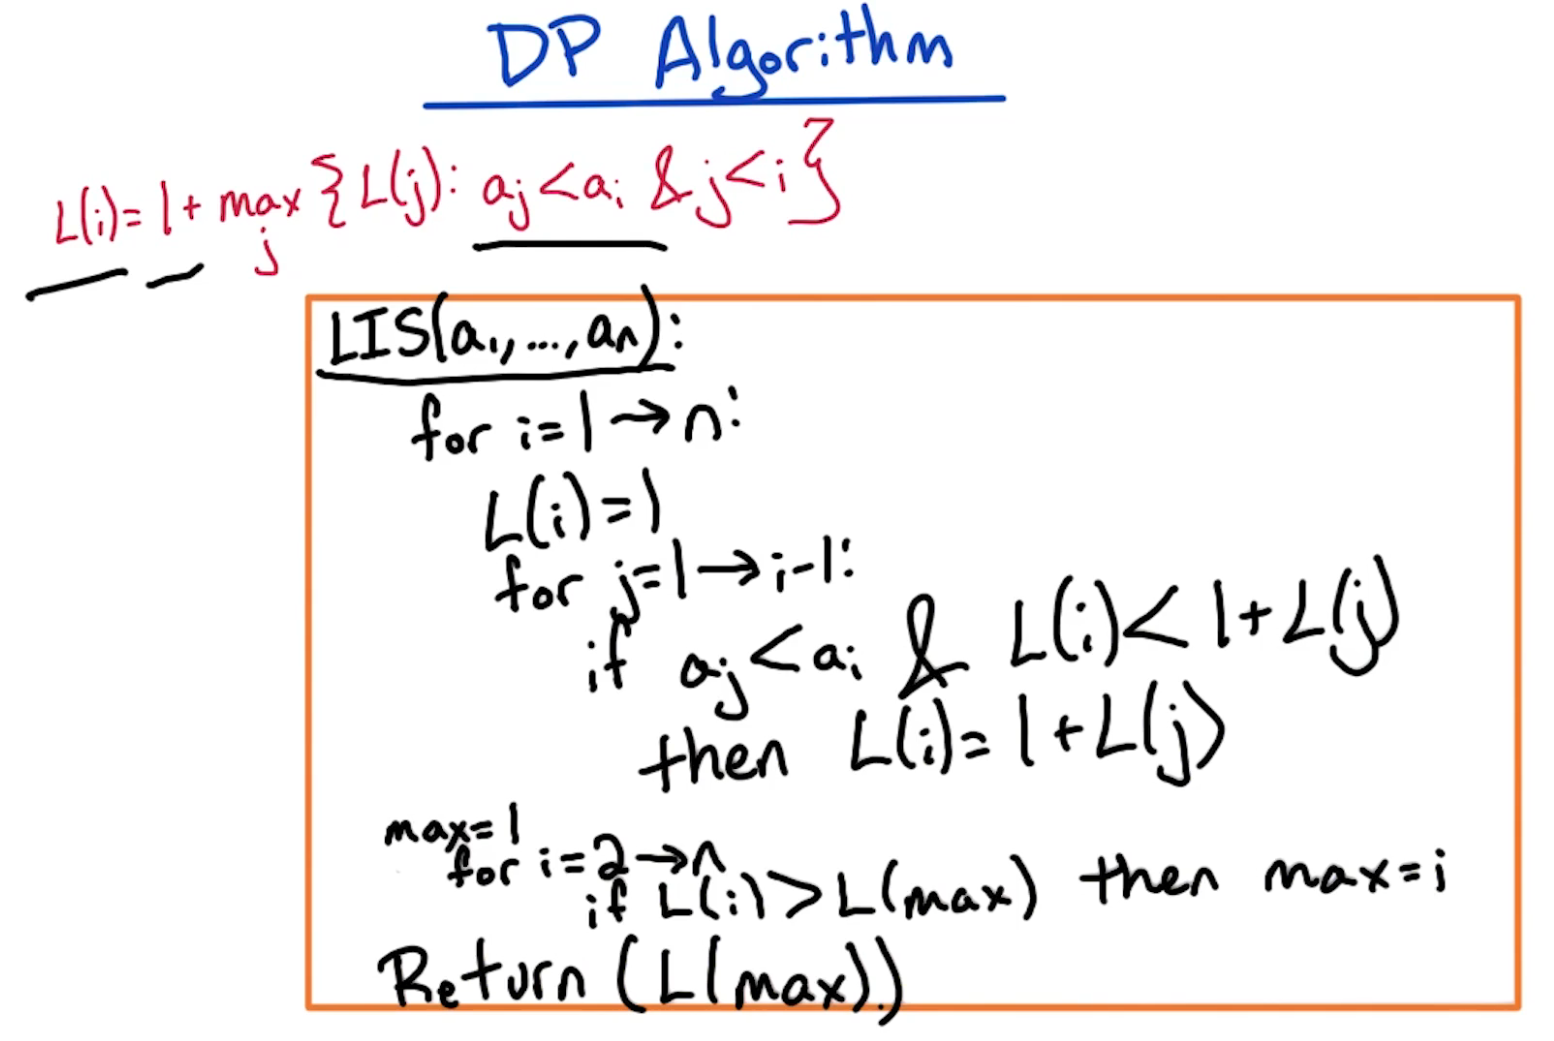 DP Algorithm
L(i)= 1+ max {L(j): aj<ai & j<i}
j
LIS(a1,...,an):
for i=1→n:
L(i)=1
for j=1→i-1:
if aj<ai & L(i)<1+L(j)
then L(i)=1+L(j)
max=1
for i=2→n
if L(i)>L(max) then max=i
Return (L(max))